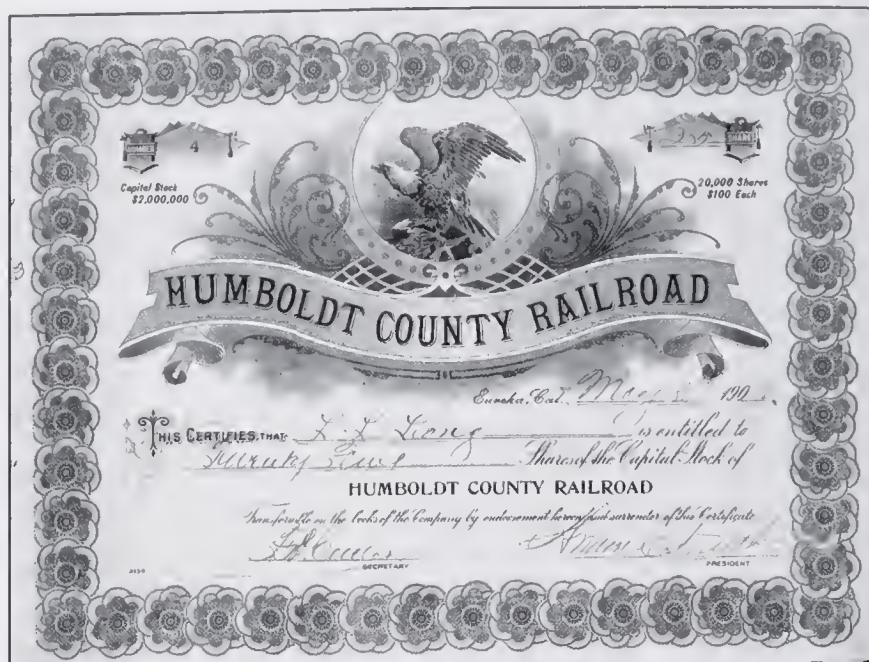 NUMBER
4
SHARES
Capital Stock
$2,000,000
20,000 Shares
$100 Each
HUMBOLDT COUNTY RAILROAD
Eureka, Cal. 190
THIS CERTIFIES, THAT is entitled to
Shares of the Capital Stock of
HUMBOLDT COUNTY RAILROAD
Transferable on the books of the Company by endorsement hereon and surrender of this Certificate
SECRETARY
PRESIDENT